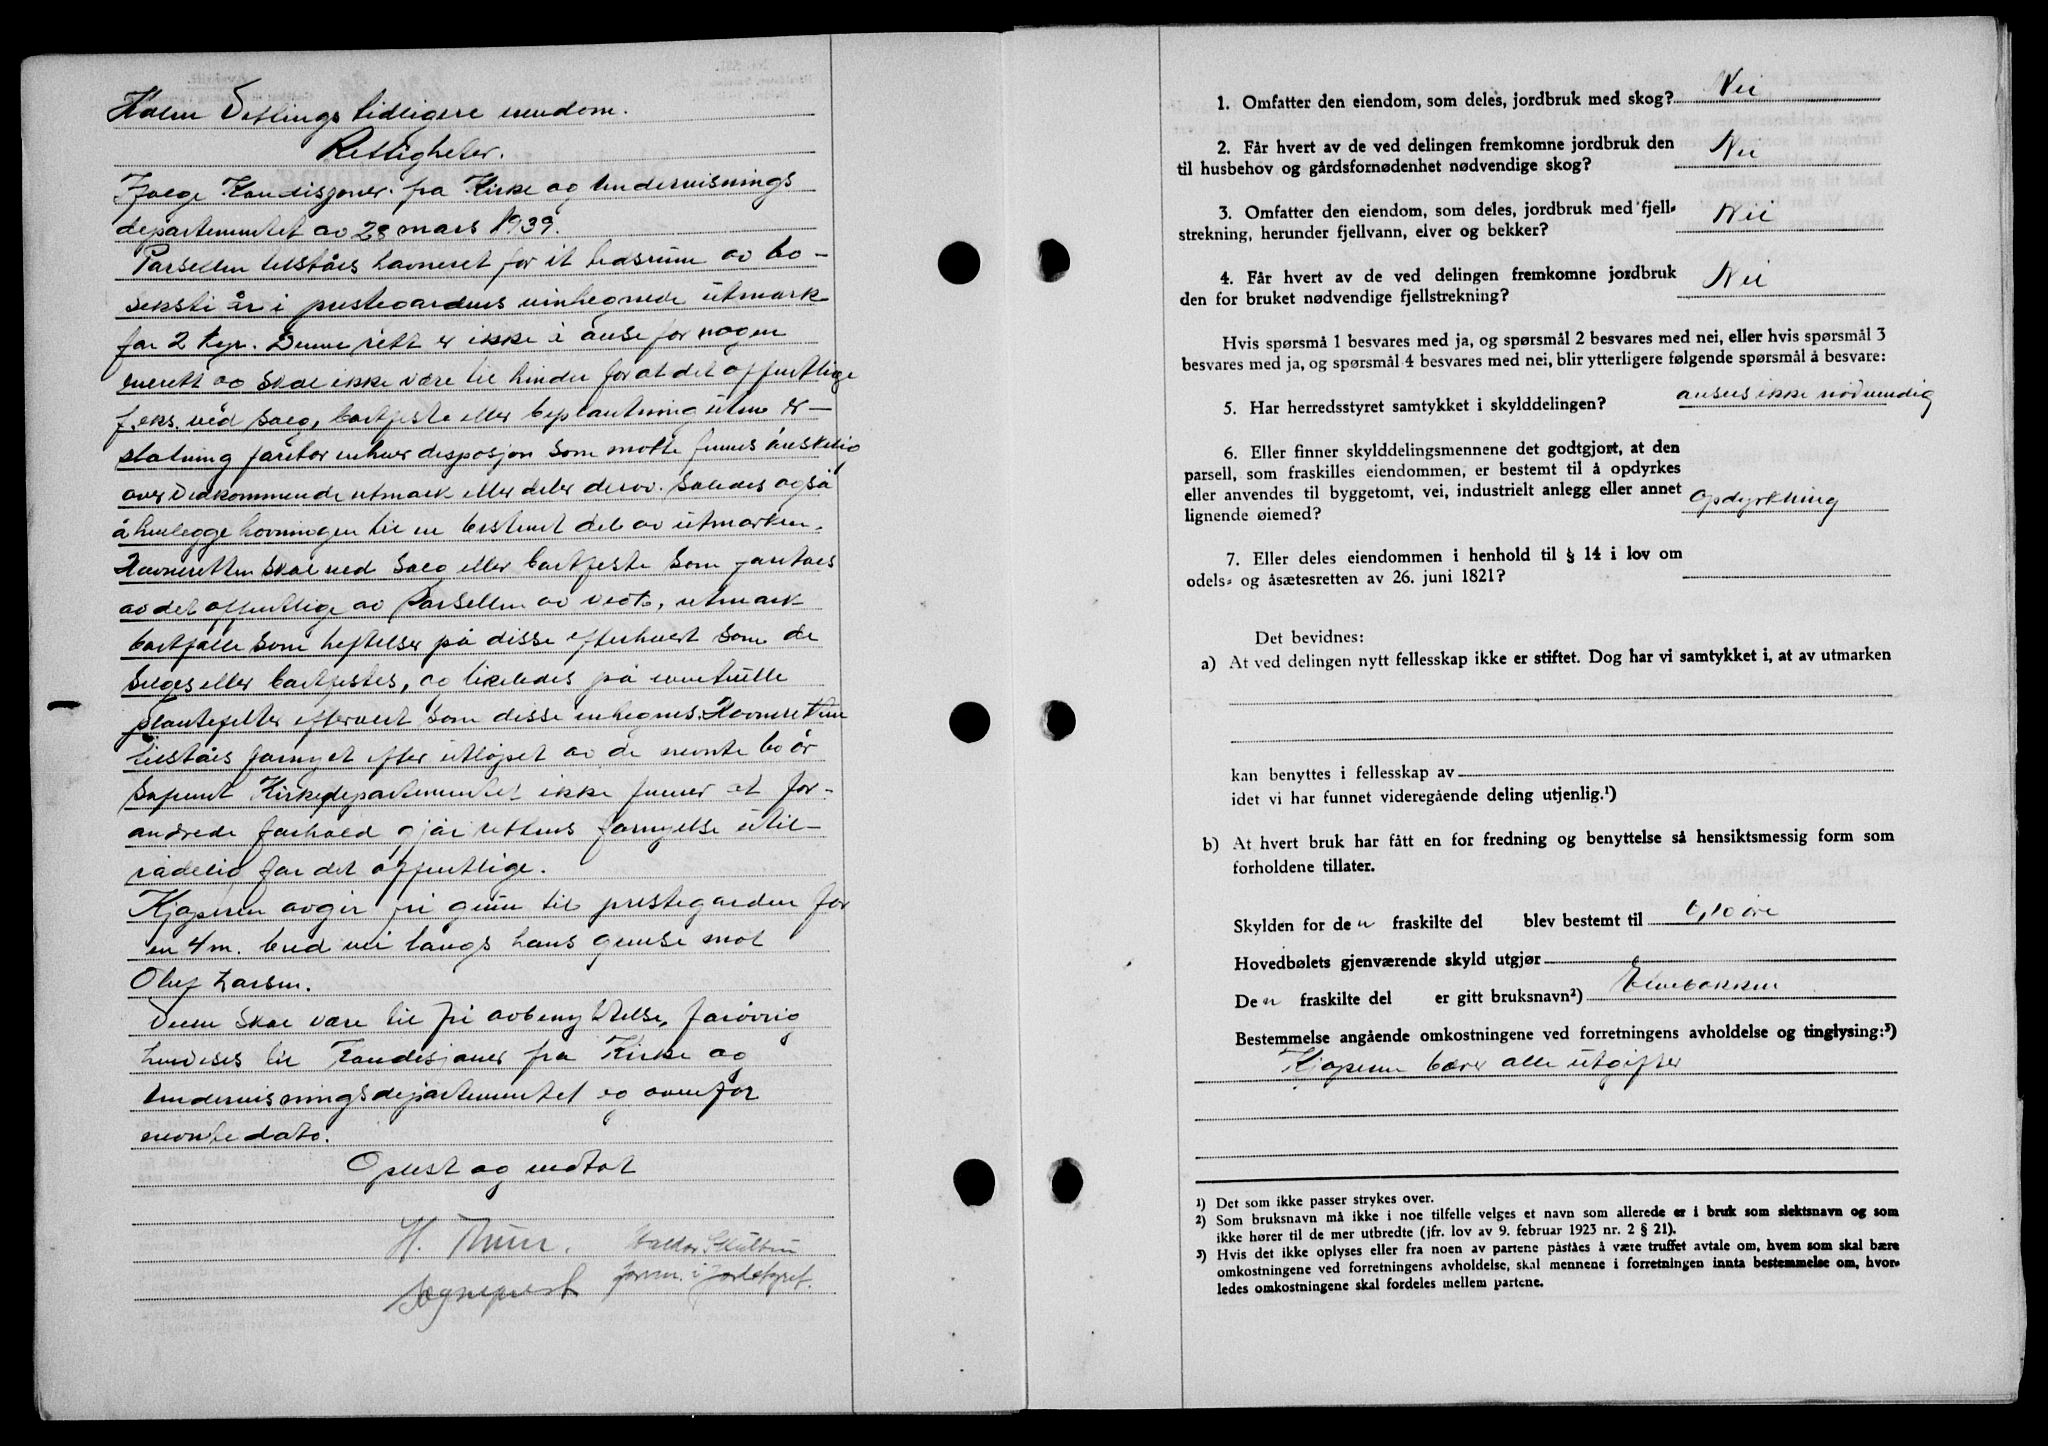 tidligere eiendom.
Rettigheter.
Ifølge Kondisjoner fra Kirke og Undervisnings
departementet av 28 mars 1939.
Parsellen tilståes havneret for it tidsrum av 60 -
seksti år i prestegardens uinhegnede utmark
for 2 kyr. Denne rett er ikke å anse for nogen
enerett og skal ikke være til hinder for at det offentlige
f. eks. ved salg, bortfeste eller beplantning uten er-
statning foretar enhver disposjon som måtte finnes ønskelig
over vedkommende utmark eller deler derav. Således også
å henlegge havningen til en bestemt del av utmarken.
Havneretten skal ved salg eller bortfeste som foretaes
av det offentlige av Parsellen av vedk. utmark
bortfalle som heftelser på disse efterhvert som de
selges eller bortfestes, og likeledes på eventuelle
plantefelter eftervert som disse inhegnes. Havneretten
tilståes fornyet efter utløpet av de nevnte 60 år
såfremt Kirkedepartementet ikke finner at for-
andrede forhold gjør rettens fornyelse util-
rådelig for det offentlige.
Kjøperen avgir fri grunn til prestegarden for
en 4 m. bred vei langs hans grense mot
Oluf Larsen.
Veien skal være til fri avbenyttelse, forøvrig
henvises til Kondisjoner fra Kirke og
Undervisningsdepartementet og ovenfor
nevnte dato.
Oplest og vedtat
H.
Sogneprest
form. i Jordstyret.
1. Omfatter den eiendom, som deles, jordbruk med skog? Nei
2. Får hvert av de ved delingen fremkomne jordbruk den
til husbehov og gårdsfornødenhet nødvendige skog? Nei
3. Omfatter den eiendom, som deles, jordbruk med fjell-
strekning, herunder fjellvann, elver og bekker? Nei
4. Får hvert av de ved delingen fremkomne jordbruk
den for bruket nødvendige fjellstrekning? Nei
Hvis spørsmå 1 besvares med ja, og spørsmål 2 besvares med nei, eller hvis spørsmål 3
besvares med ja, og spørsmål 4 besvares med nei, blir ytterligere følgende spørsmål å besvare:
5. Har herredsstyret samtykket i skylddelingen? anses ikke nødvendig
6. Eller finner skylddelingsmennene det godtgjort, at den
parsell, som fraskilles eiendommen, er bestemt til å opdyrkes
eller anvendes til byggetomt, vei, industrielt anlegg eller annet
lignende øiemed? Opdyrkning
7. Eller deles eiendommen i henhold til § 14 i lov om
odels- og åsætesretten av 26. juni 1821?
Det bevidnes:
a) At ved delingen nytt fellesskap ikke er stiftet. Dog har vi samtykket i, at av utmarken
kan benyttes i fellesskap av
idet vi har funnet videregående deling utjenlig.¹)
b) At hvert bruk har fått en for fredning og benyttelse så hensiktsmessig form som
forholdene tillater.
Skylden for den fraskilte del blev bestemt til 0,10 øre
Hovedbølets gjenværende skyld utgjør
Den fraskilte del er gitt bruksnavn²) Elvebakken
Bestemmelse angående omkostningene ved forretningens avholdelse og tinglysing:³)
Kjøperen bærer alle utgifter
¹) Det som ikke passer strykes over.
²) Som bruksnavn må ikke i noe tilfelle velges et navn som allerede er i bruk som slektsnavn og som
ikke hører til de mer utbredte (jfr. lov av 9. februar 1923 nr. 2 § 21).
³) Hvis det ikke oplyses eller fra noen av partene påståes å være truffet avtale om, hvem som skal bære
omkostningene ved forretningens avholdelse, skal mennene i forretningen innta bestemmelse om, hvor-
ledes omkostningene skal fordeles mellem partene.